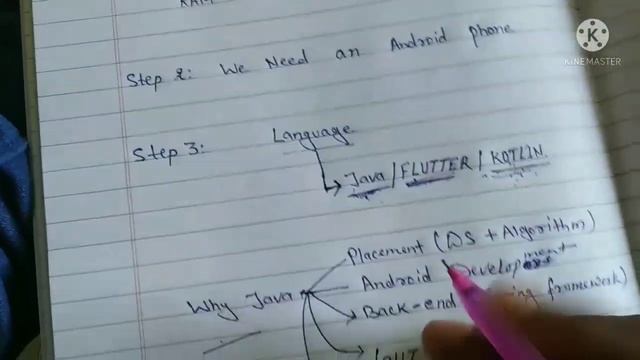 K
KINEMASTER
Step 2: We Need an Android phone
Step 3: Language
Java / FLUTTER / KOTLIN
Placement (DS + Algorithm)
Why Java
Android Development
Back-end framework)